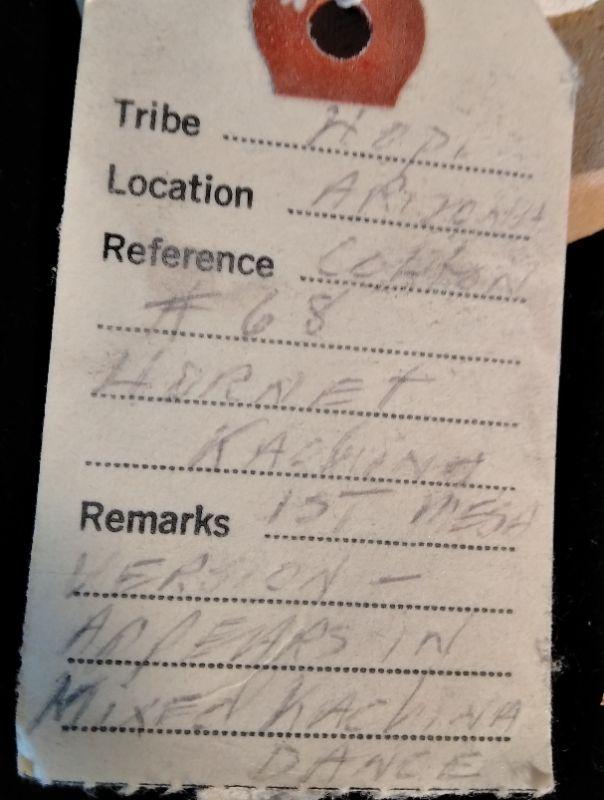 Tribe Hopi
Location ARIZONA
Reference Colton
# 68
HORNET
KACHINA
Remarks 1ST MESA
VERSION -
APPEARS IN
MIXED KACHINA
DANCE